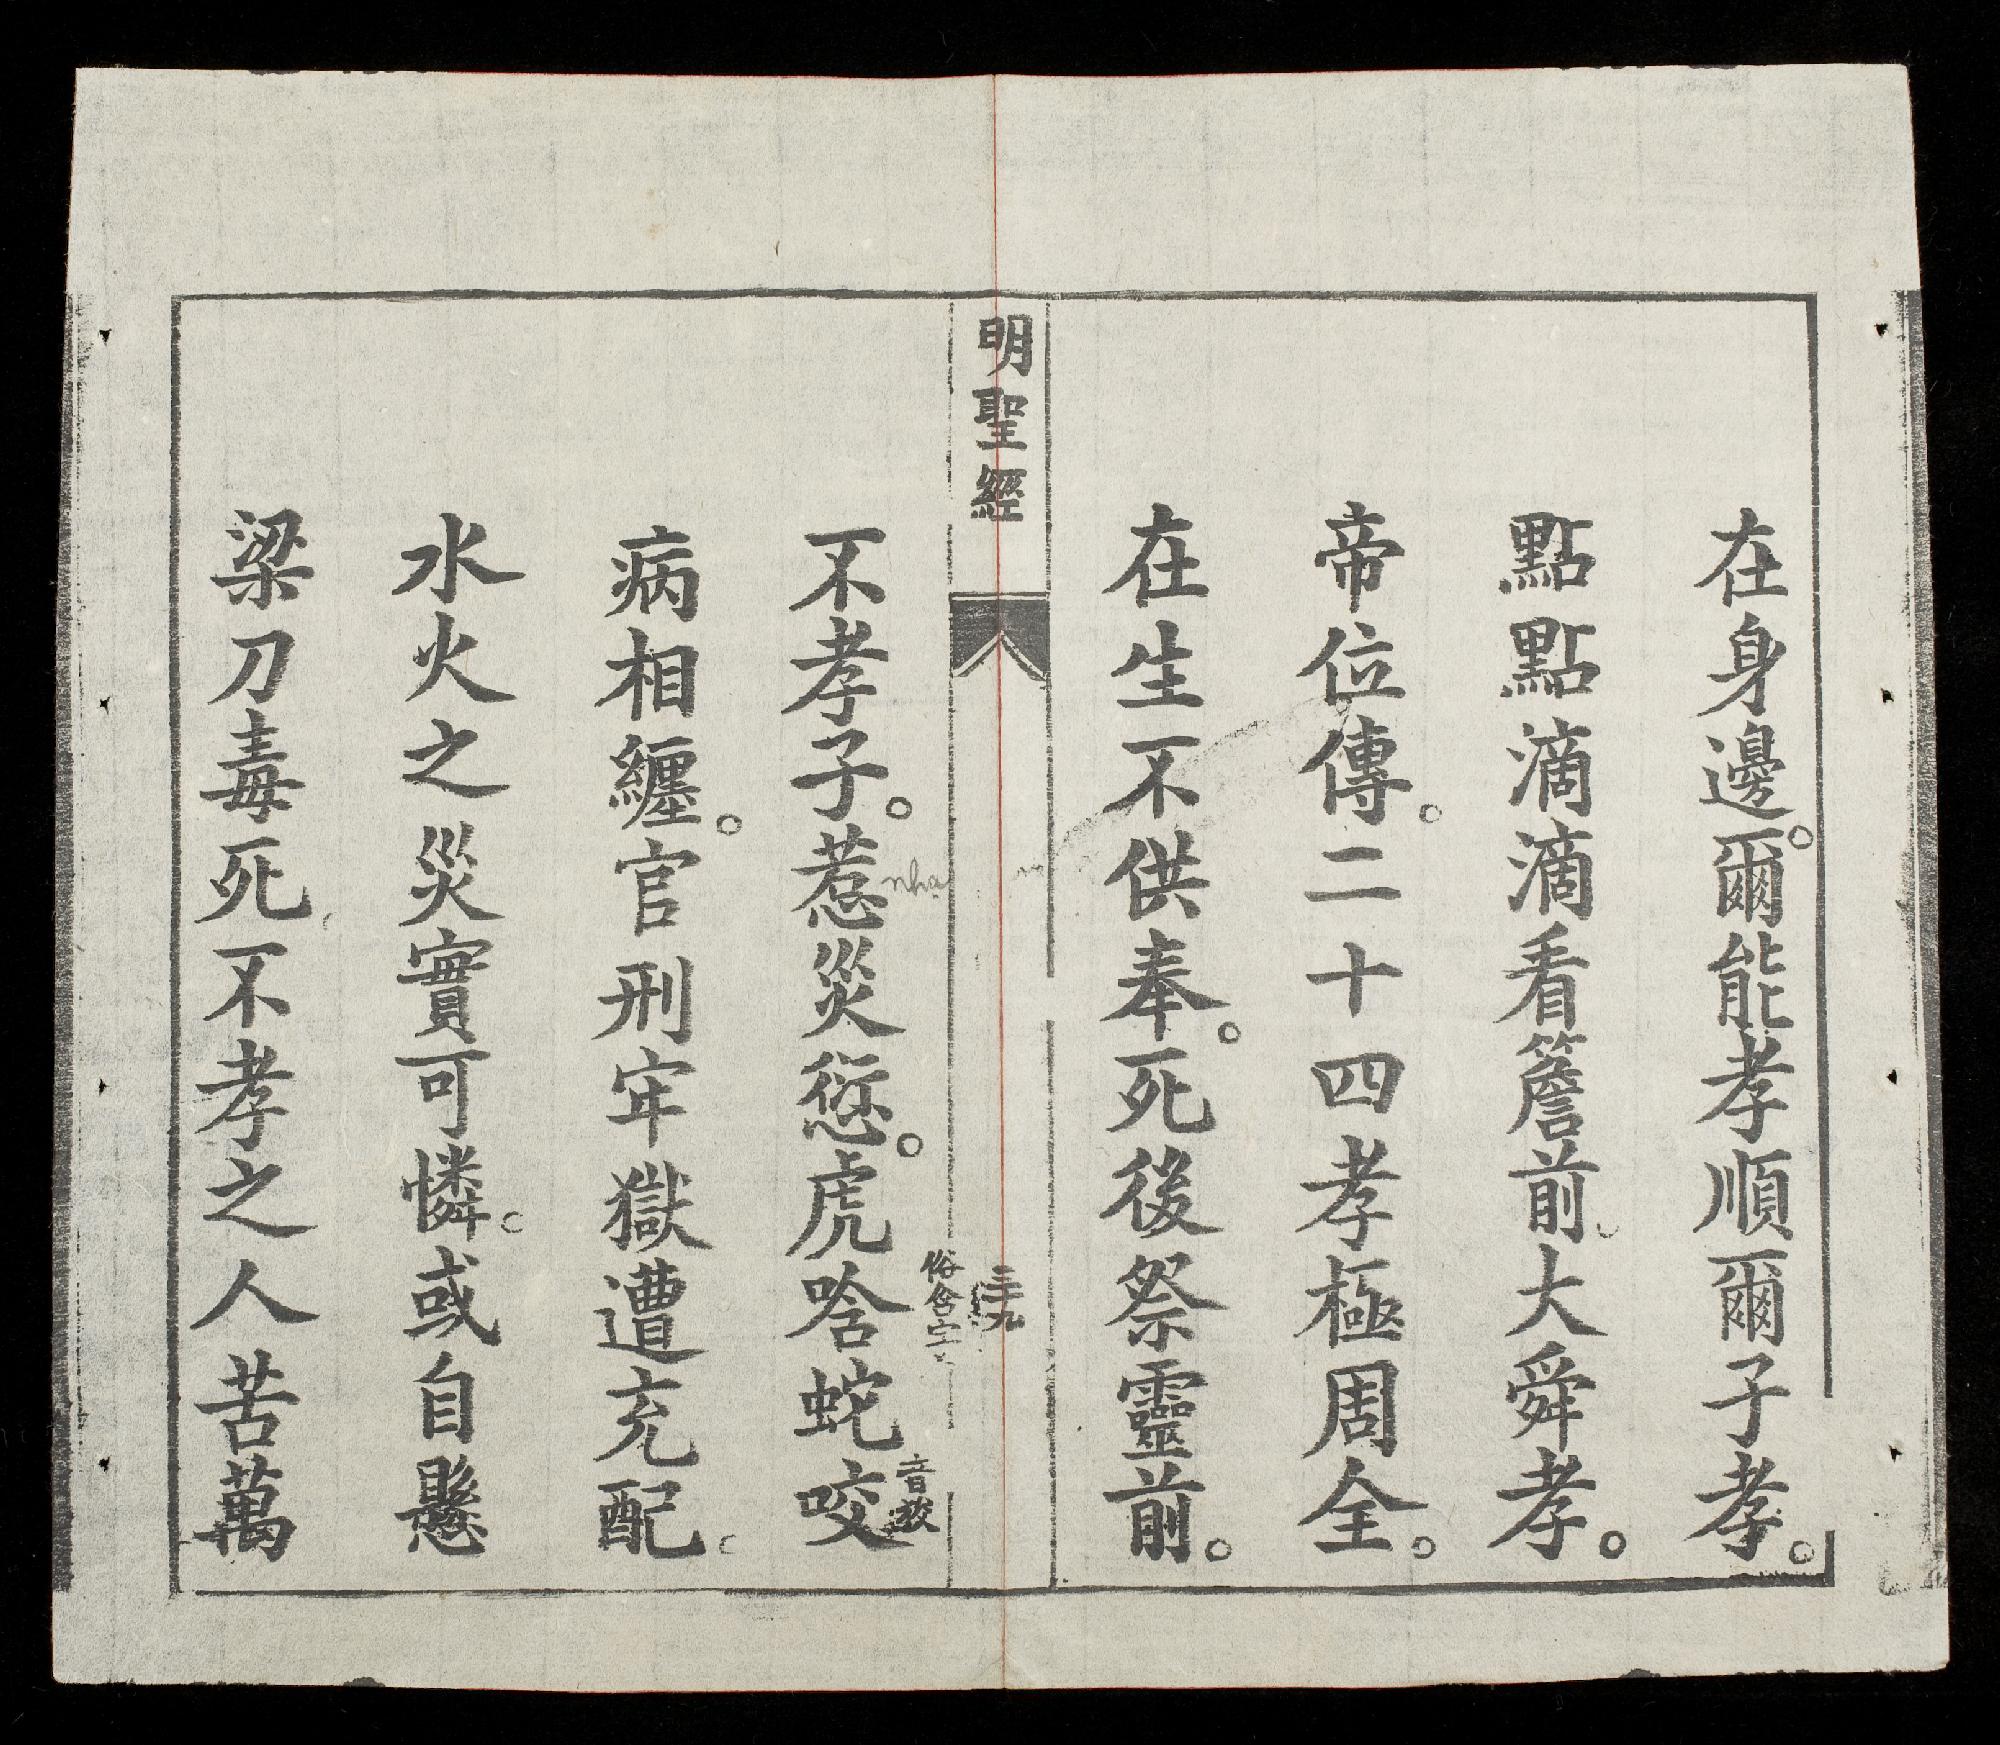 在身邊。爾能孝順爾子孝。
點點滴滴看簷前。大舜孝。
帝位傳。二十四孝極周全。
在生不供奉。死後祭靈前。
明聖經
三十九
不孝子。惹災愆。虎啥蛇咬
nha
俗含字
音
病相纏。官刑牢獄遭充配。
水火之災實可憐。或自懸
梁刀毒死。不孝之人苦萬